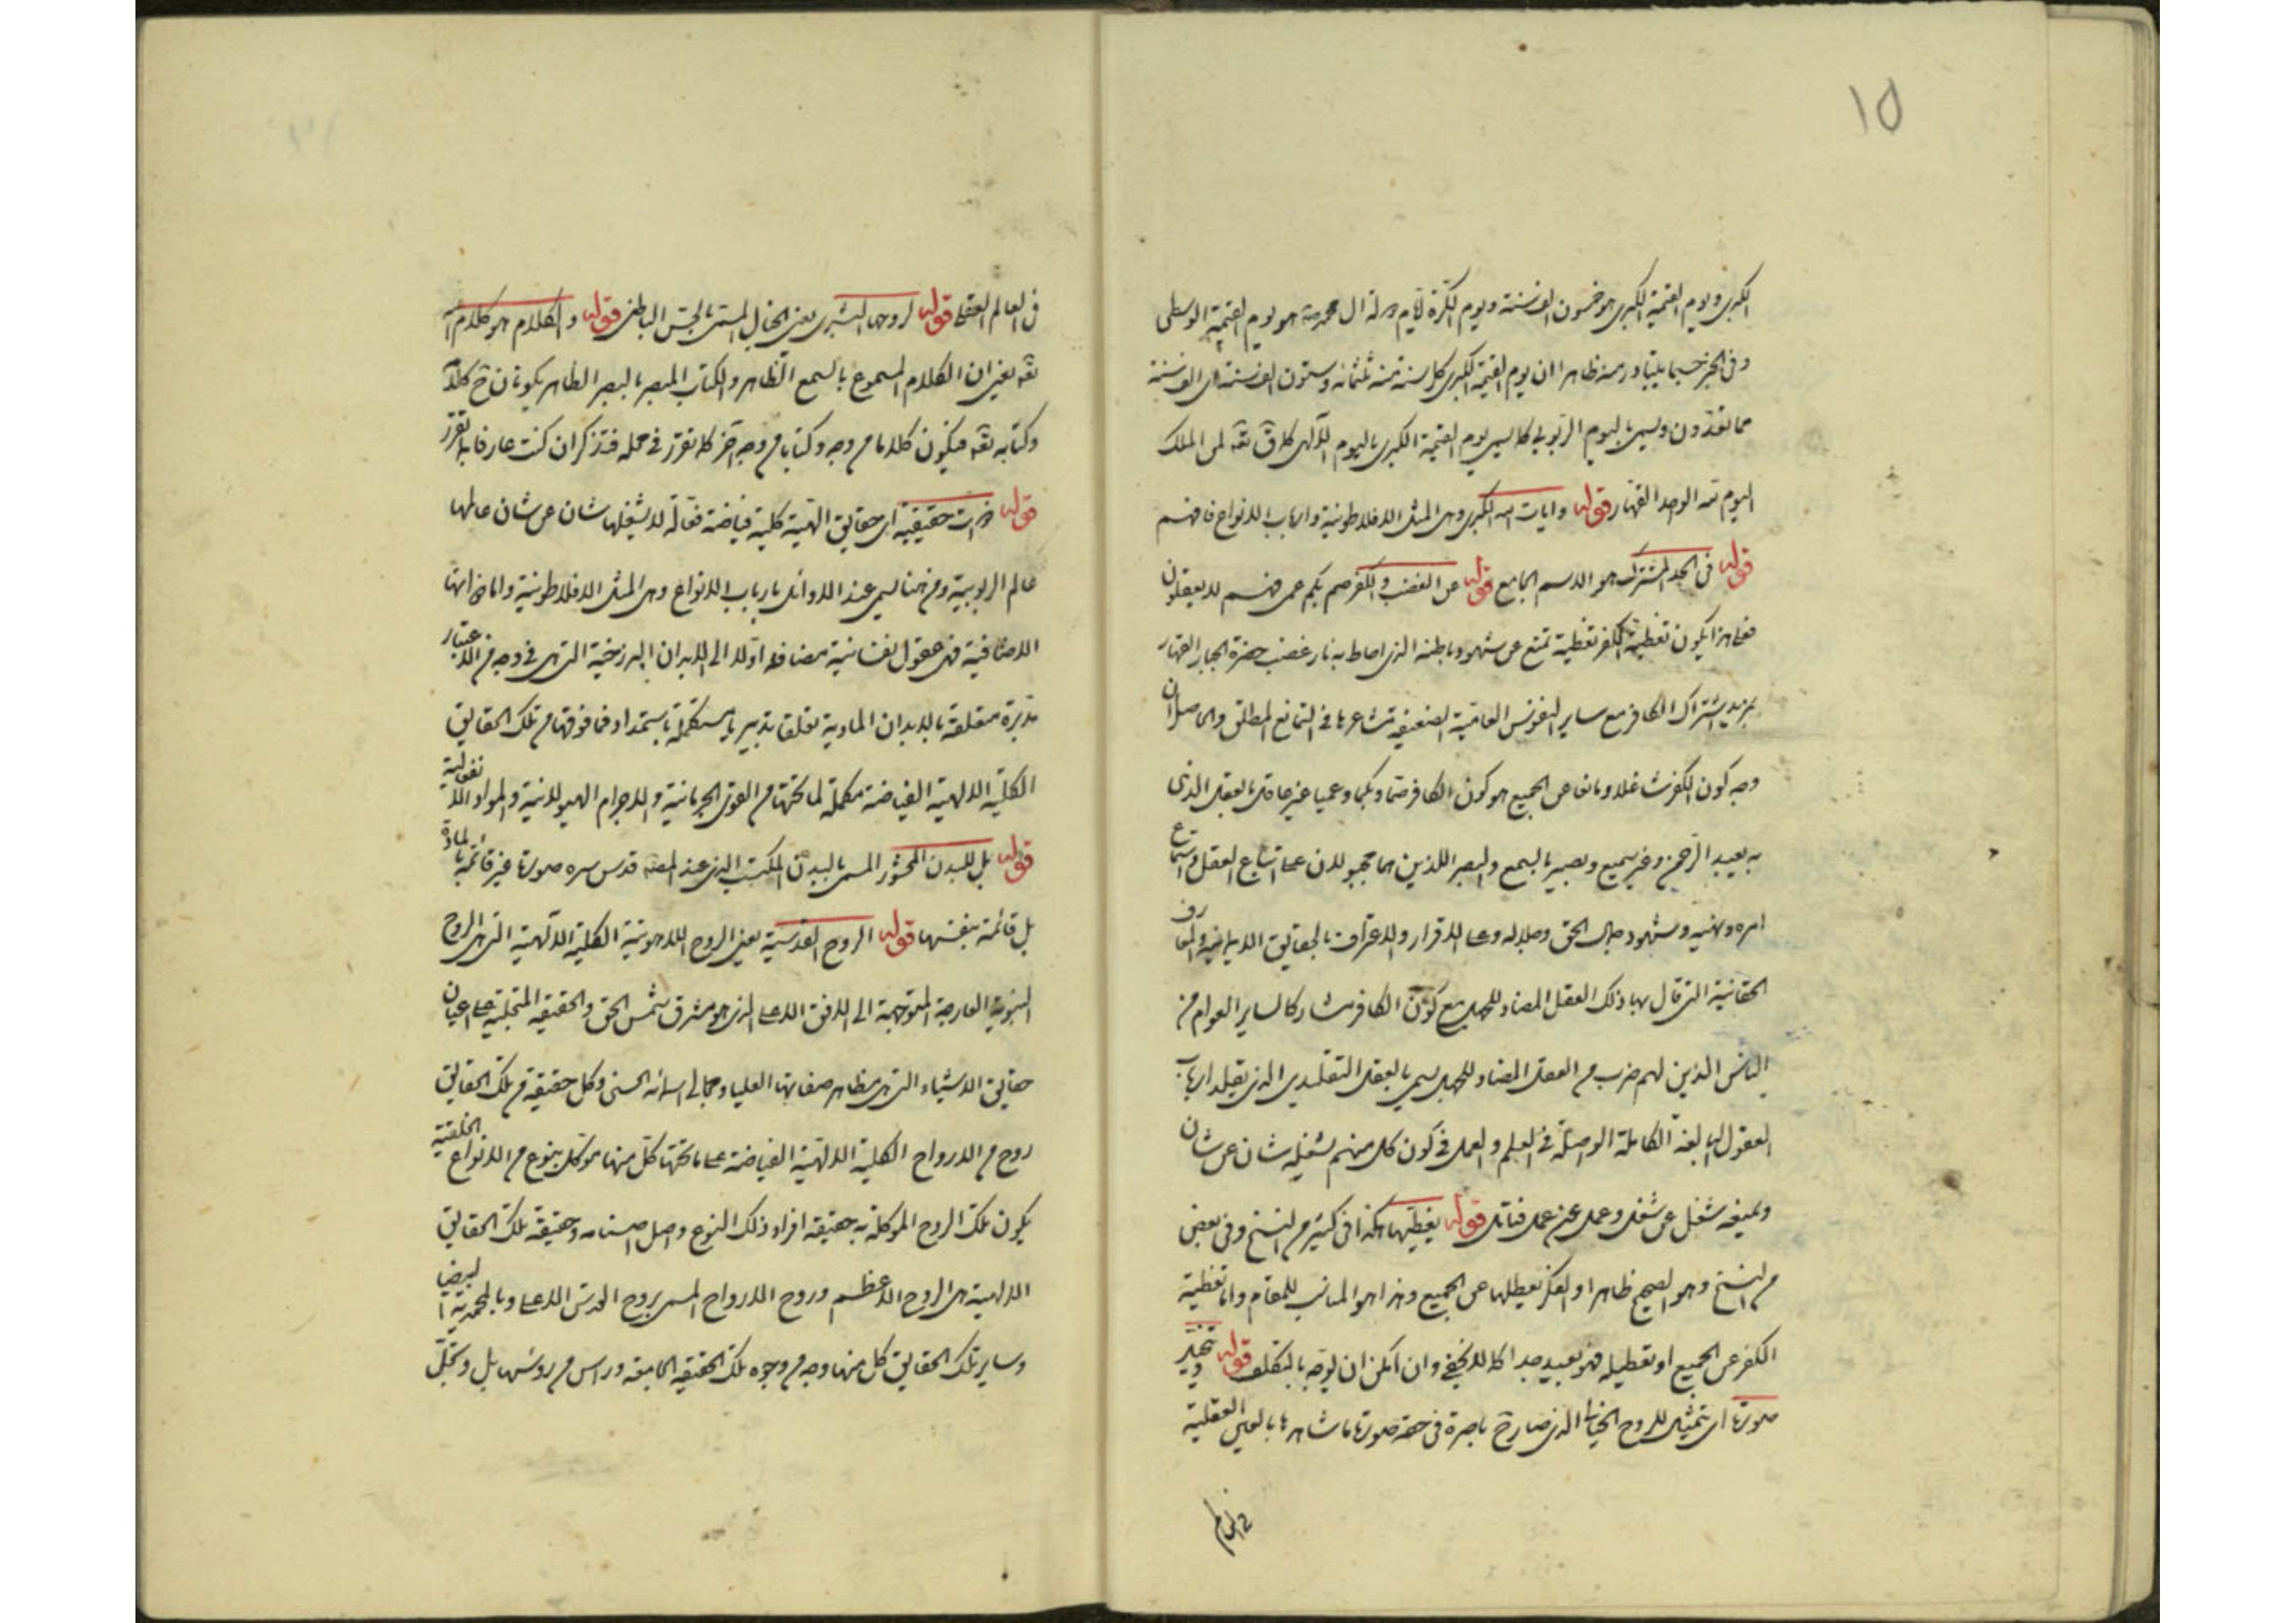 ١٥
الكبرى ويوم القيمة الكبرى هو خمسون الف سنة ويوم الكرة لايام دولة آل محمد ص هو يوم القيمة الوسطى
وفى الخبر حسبما يتبادر منه ظاهرا ان يوم القيمة الكبرى كل سنة منه ثلثمائة وستون الف سنة الف سنة
مما تعدون ويسمى باليوم الربوبي كما يسمى يوم القيمة الكبرى باليوم الآلهى كما ق تعه لمن الملك
اليوم لله الواحد القهار قوله وايات الله الكبرى وهى المثل الافلاطونية وارباب الانواع فافهم
قوله فى الحد المشترك هو الاسم الجامع قوله عن الغضب والكفر صم بكم عمى فهم لا يعقلون
فعلى هذا يكون تغطية الكفر تغطية تمنع عن شهود باطنه الذى احاط به نار غضب حضرة الجبار القهار
بمزيد اشتراك الكافر مع ساير النفوس العامية الضعيفة مشاعرها فى التمانع المطلق والحاصل ان
وجه كون الكفر شاغلا ومانعا عن الجميع هو كون الكافر صما وبكما وعميا غير عاقل بالعقل الذى
به يعبد الرحمن وغير سميع وبصير بالسمع والبصر اللذين هما مجبولان على اتباع العقل واستماع
امره ونهيه وشهود جمال الحق وجلاله وعلى الاقرار والاعتراف بالحقايق الايمانية والمعارف
الحقانية التى قال بها ذلك العقل المضاد للجهل مع كون الكافر مشاركا لساير العوام من
الناس الذين لهم ضرب من العقل المضاد للجهل يسمى بالعقل التقليدى الذى يقلد ارباب
العقول البالغة الكاملة الواصلة فى العلم والعمل فى كون كل منهم يشغله شان عن شان
ويمنعه شغل عن شغل وعمل عن عمل فتامل قوله يغطيها هكذا فى كثير من النسخ وفى بعض
من النسخ وهو الصحيح ظاهرا او الفكر يعطلها عن الجميع وهذا هو المناسب للمقام واما تغطية
الكفر عن الجميع او تعطيله فهو بعيد جدا كما لا يخفى وان امكن ان يوجه بالتكلف قوله ويتخيل
صورتها اى يتمثل للروح الخيالى الذى صارح باصرة فى حقه صورتها ما شاهدها بالعين العقلية
فى العالم
فى العالم العقلى قوله لروحه البشرى يعنى الخيال المسمى بالحس الباطنى قوله والكلام هو كلام الله
تعه يعنى ان الكلام المسموع بالسمع الظاهر والكتاب المبصر بالبصر الظاهر يكونان ح كلام الله
وكتابه تعه فيكون كلاما من وجه وكتابا من وجه آخر كما تقرر فى محله فتذكر ان كنت عارفا بما تقرر
قوله ذوات حقيقية اى حقايق الهية كلية فياضة فعالة لا يشغلها شان عن شان عالمها
عالم الربوبية ومن هنا يسمى عند الاوائل بارباب الانواع وهى المثل الافلاطونية واما ذواتها
الاضافية فهى عقول نفسانية مضافة اولا الى الابدان البرزخية التى هى فى وجه من الاعتبار
مدبرة متعلقة بالابدان المادية تعلقا تدبيريا مستكملة باستمداد فما فوقها من تلك الحقايق
الكلية الالهية الفياضة مكملة لما تحتها من القوى الجرمانية والاجرام الهيولانية والمواد الانفعالية
قوله بل للبدن المحشور المسمى بالبدن المكتسب الذى عند المصه قدس سره صورتها غير قائمة بالمادة
بل قائمة بنفسها قوله الروح القدسية يعنى الروح اللاهوتية الكلية الالهية التى هى الروح
النبوية العارجة المتوجهة الى الافق الاعلى الذى هو مشرق شمس الحق والحقيقة المتجلية على اعيان
حقايق الاشياء التى هى مظاهر صفاتها العليا ومجالى اسمائه الحسنى وكل حقيقة من تلك الحقايق
روح من الارواح الكلية الالهية الفياضة على ما تحتها كل منها موكل بنوع من الانواع الخلقية
يكون تلك الروح الموكلة به حقيقة افراد ذلك النوع واصل اصنامه وحقيقة تلك الحقايق
الالهية هى الروح الاعظم وروح الارواح المسمى بروح القدس الاعلى وبالمحمدية البيضا
وساير تلك الحقايق كل منها وجه من وجوه تلك الحقيقة الجامعة وراس من روسها بل وتجل